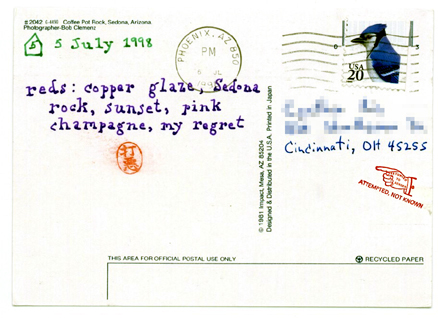 S 2042 Coffee Pot Rock, Sedona, Arizona.
Photographer-Bob Clemenz
5 July 1998
PHOENIX, AZ 850
PM
USA
20
reds: copper glaze, Sedona
rock, sunset, pink
champagne, my regret
Cincinnati, OH 45255
ATTEMPTED, NOT KNOWN
© 1981 Impact, Mesa, AZ 85204
Designed & Distributed in the U.S.A. Printed in Japan
THIS AREA FOR OFFICIAL POSTAL USE ONLY
RECYCLED PAPER